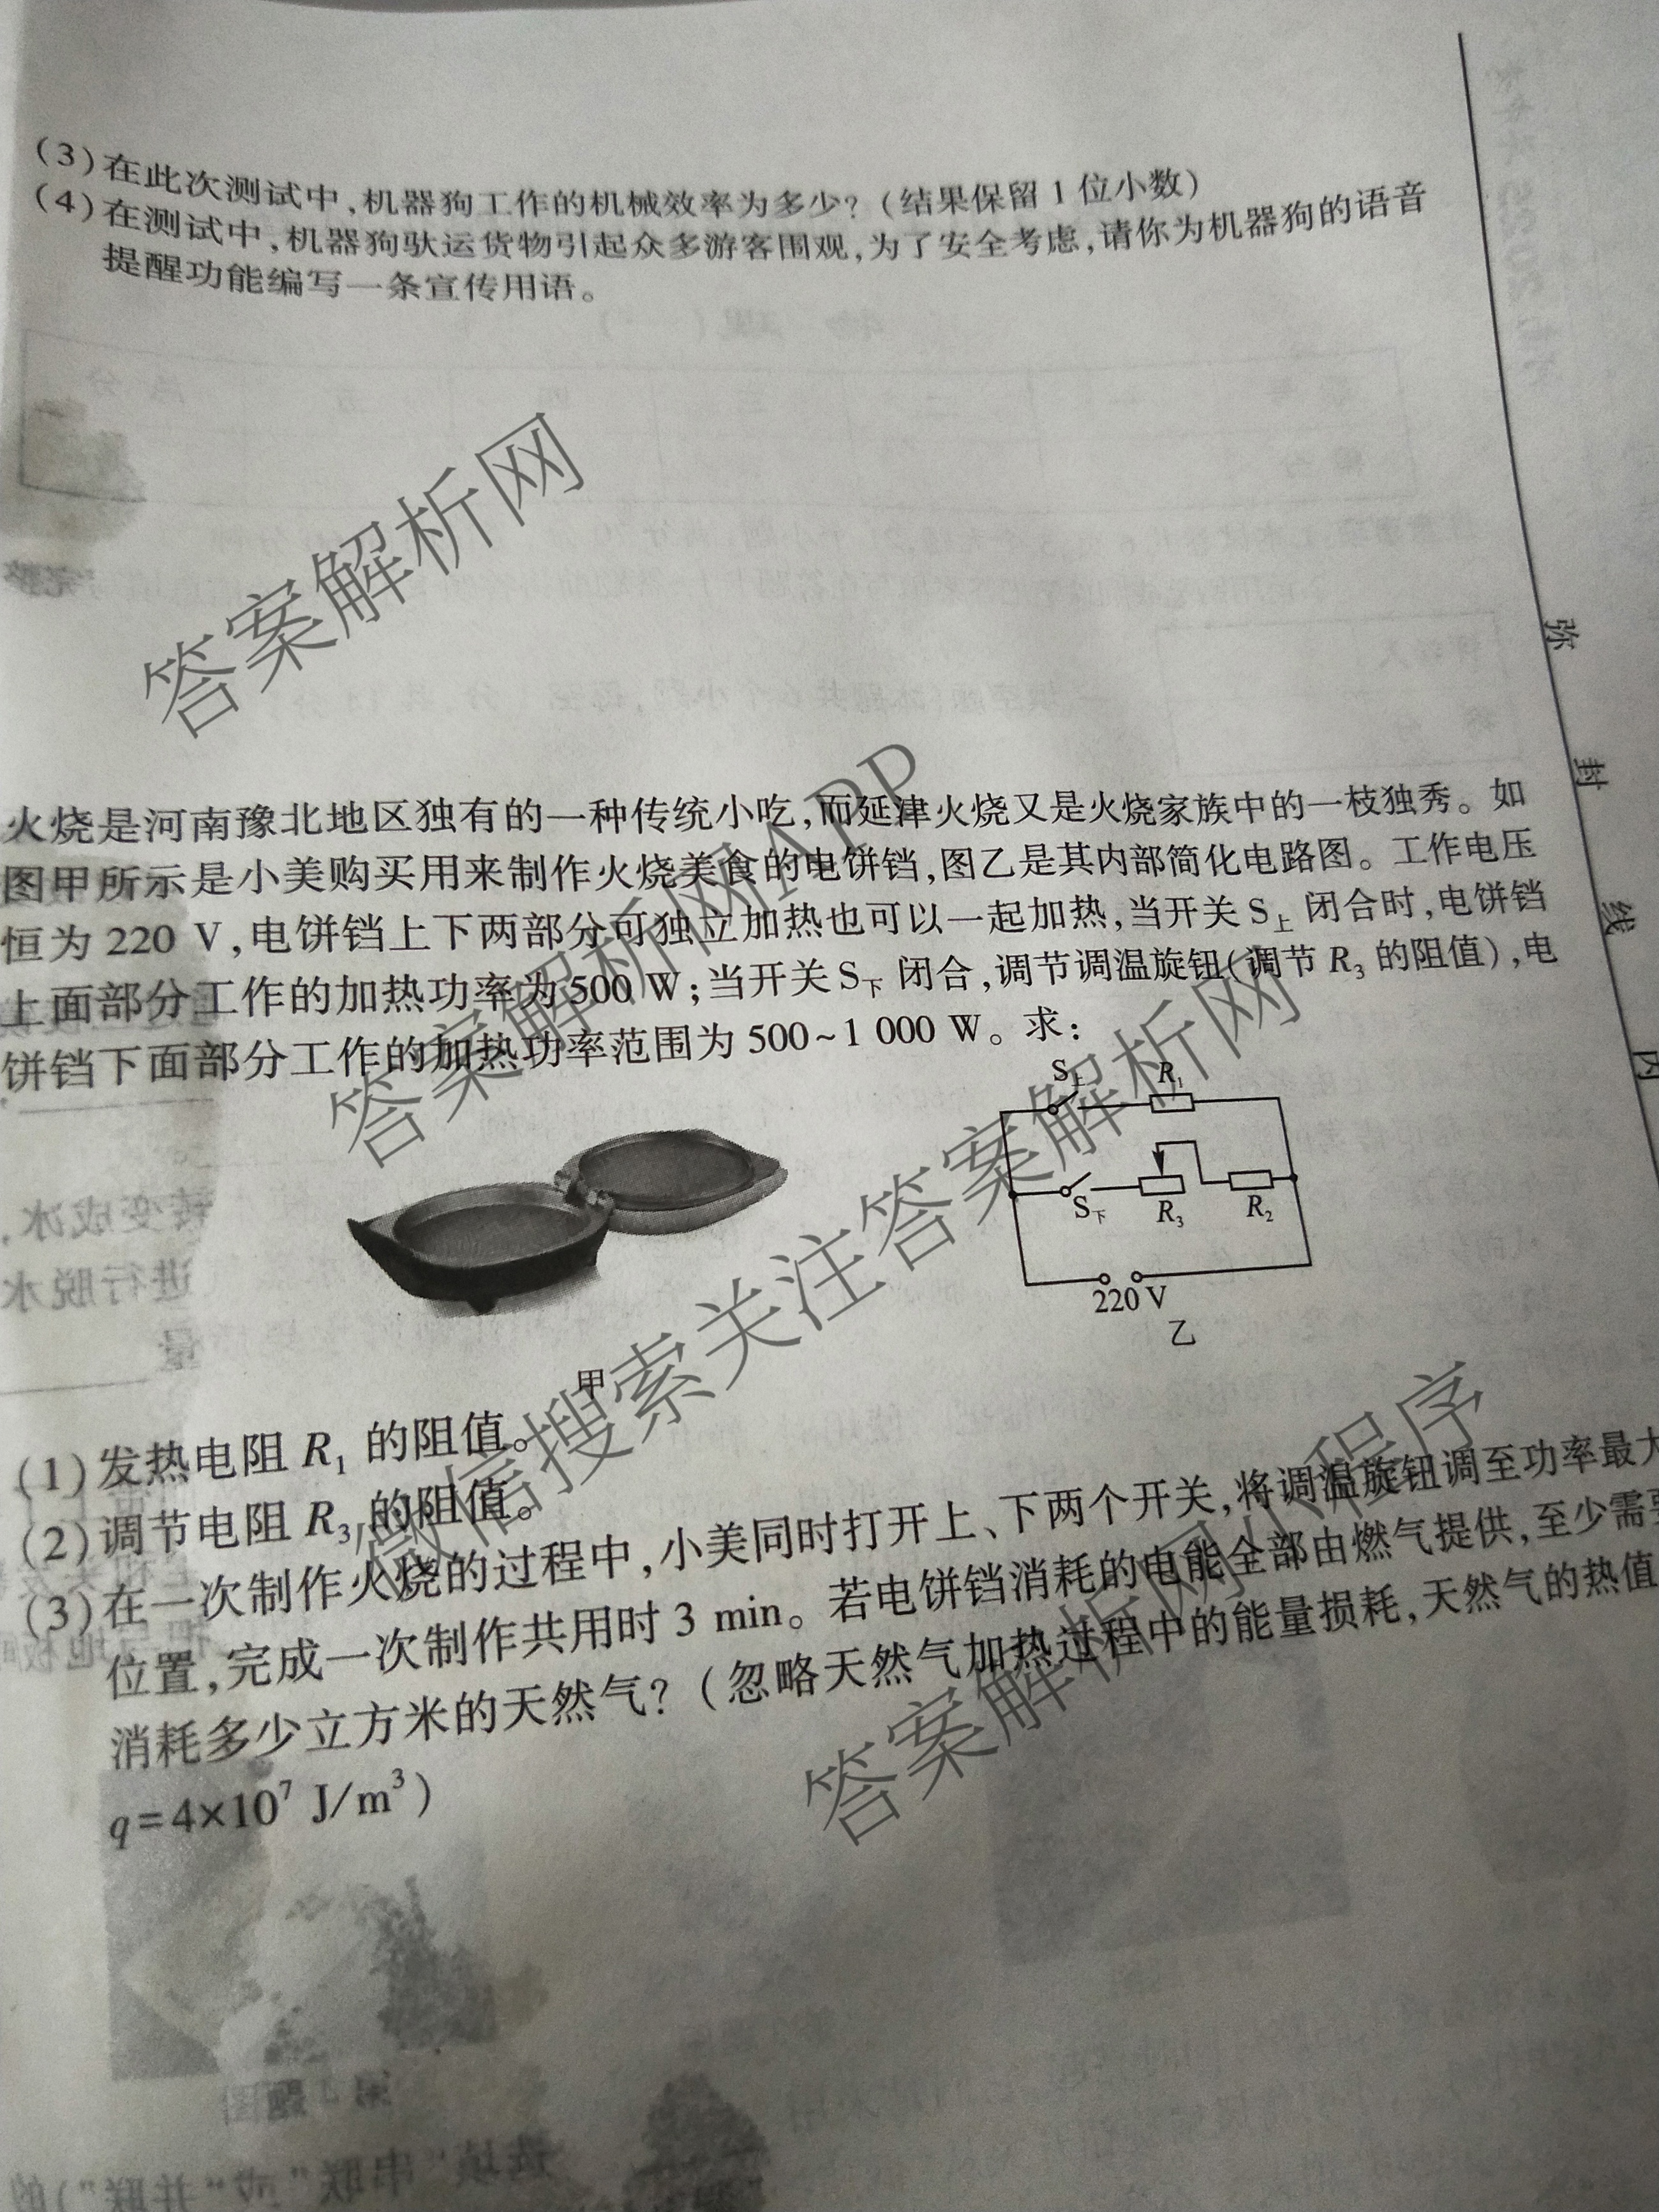 (3)在此次测试中,机器狗工作的机械效率为多少?(结果保留1位小数)
(4)在测试中,机器狗驮运货物引起众多游客围观,为了安全考虑,请你为机器狗的语音
提醒功能编写一条宣传用语。
答案解析网
火烧是河南豫北地区独有的一种传统小吃,而延津火烧又是火烧家族中的一枝独秀。如
图甲所示是小美购买用来制作火烧美食的电饼铛,图乙是其内部简化电路图。工作电压
恒为220 V,电饼铛上下两部分可独立加热也可以一起加热,当开关S上闭合时,电饼铛
上面部分工作的加热功率为500 W;当开关S下闭合,调节调温旋钮(调节R3的阻值),电
饼铛下面部分工作的加热功率范围为500~1 000 W。求:
答案解析网APP
S上 R1
S下 R3 R2
220 V
乙
甲
微信搜索关注答案解析网
(1)发热电阻R1的阻值。
(2)调节电阻R3的阻值。
(3)在一次制作火烧的过程中,小美同时打开上、下两个开关,将调温旋钮调至功率最大
位置,完成一次制作共用时3 min。若电饼铛消耗的电能全部由燃气提供,至少需要
消耗多少立方米的天然气?(忽略天然气加热过程中的能量损耗,天然气的热值
q=4×10⁷ J/m³)
答案解析网小程序
弥
封
线
内